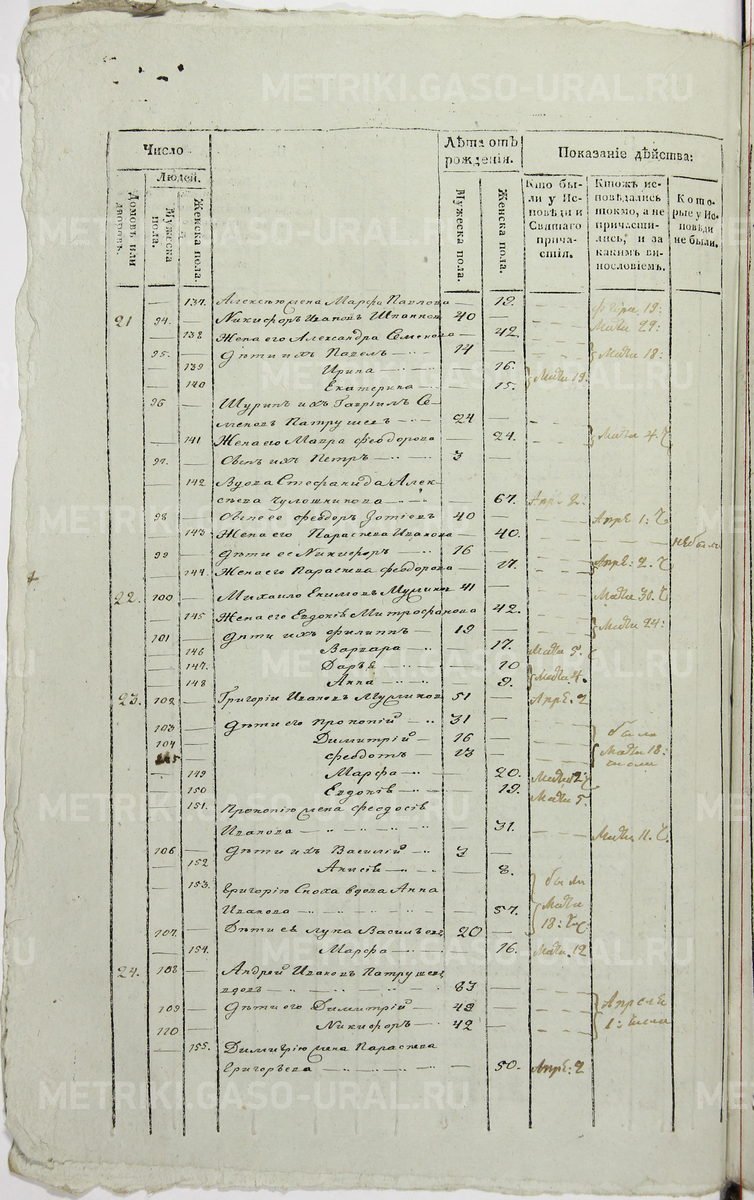 METRIKI.GASO-URAL.RU
Число
Лѣта отъ рожденія.
Показаніе дѣйства:
Людей.
Домовъ или дворовъ.
Мужеска пола.
Женска пола.
Мужеска пола.
Женска пола.
Кто были у Исповѣди и Святаго причастія.
Ктожъ исповѣдались токмо, а не причастились, и за какимъ винословіемъ.
Которые у Исповѣди не были.
— 137. Алексѣю жена Марфа Павлова — 19.
21 94. — Никифоръ Ивановъ 40 —
— 138 Жена его Александра Семенова — 42. Маѩ 29:
95. — Дѣти ихъ Павелъ 14 — Маѩ 18:
— 139 Ирина — 16. Маѩ 19:
— 140 Екатерина — 15.
96 — Шуринъ ихъ Гавріилъ Се-
меновъ Патрушевъ 24 —
— 141 Жена его Мавра Феодорова — 24. Маѩ 4.
97. — Сынъ ихъ Петръ 3 —
— 142 Вдова Стефанида Алек-
сѣева Чулошникова — 67. Апр. 2:
98 — Сынъ ее Феодоръ 40 — Апрѣ 1:
— 143 Жена его Параскева Иванова — 40. не был
99 — Дѣти ее Никифоръ 16 —
— 144. Жена его Параскева Феодорова — 17. Апрѣ. 2.
22. 100 — Михаило Екимовъ 41 — Маѩ 30.
— 145 Жена его Евдокія Митрофанова — 42. Маѩ 24:
101 — Дѣти ихъ Филиппъ 19 —
— 146 Варвара — 17. Маѩ 5.
— 147. Дарья — 10
— 148 Анна — 9. Маѩ 4.
23. 102 — Григорій Ивановъ 51 — Апрѣ. 2
103 — Дѣти его Прокопій 31 —
104 Димитрій 16 — были
105 Феодотъ 13 — Маѩ 18:
— 149 Марфа — 20. Маѩ 12
— 150 Евдокія — 19. Маѩ 5
— 151. Прокопію жена Феодосія
Иванова — 31. Маѩ 11.
106 — Дѣти ихъ Василій 3 —
— 152 Анисія — 8.
— 153. Григорію Сноха вдова Анна
Иванова — 57. были Маѩ 18:
107. — Дѣти ея Лука Васильевъ 20 —
— 154. Марфа — 16. Маѩ. 12
24. 108 — Андрей Ивановъ Патрушевъ
вдовъ 83 —
109 — Дѣти его Димитрій 49 — Апрѣля
110 Никифоръ 42 — 1: числа
— 155. Димитрію жена Параскева
Григорьева — 50. Апрѣ: 2